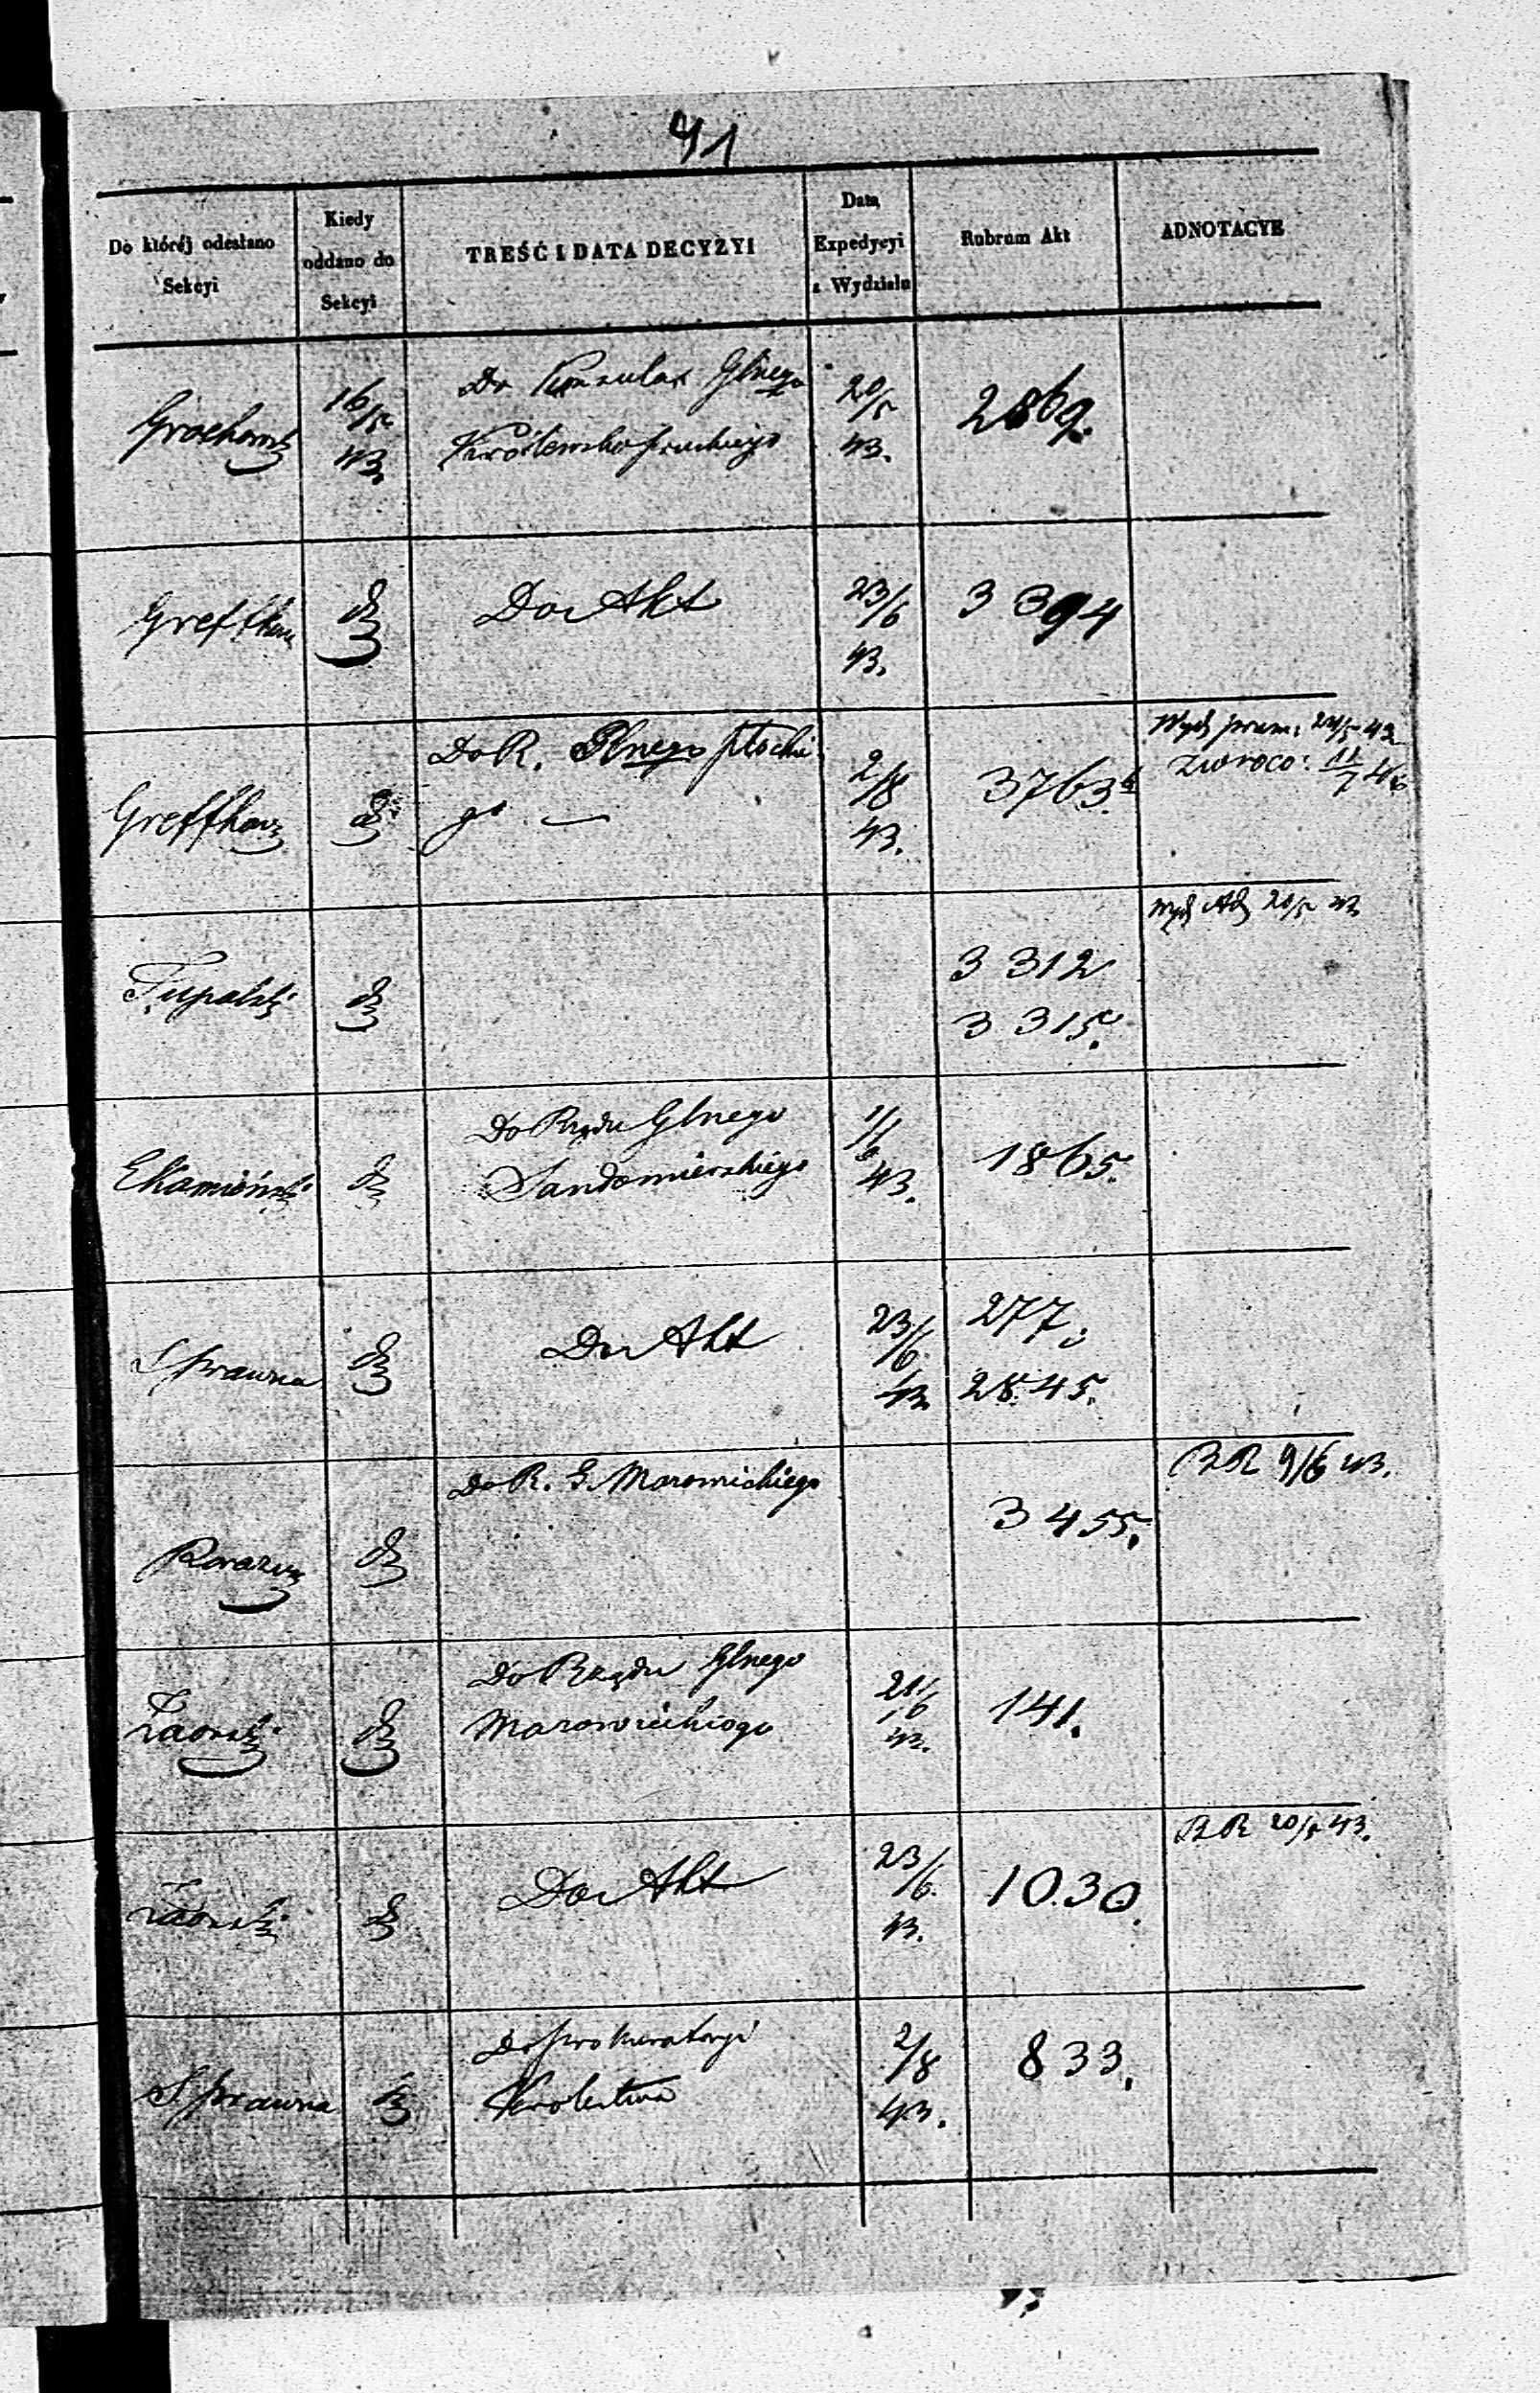 41
Do któréj odesłano Sekcyi
Kiedy oddano do Sekcyi
TREŚĆ I DATA DECYZYI
Data Expedycyi z Wydziału
Rubrum Akt
ADNOTACYE
16/5 43
Do Konsula Glnego
Królewsko pruskiego
20/5 43.
2869.
Do Akt
23/6 43.
3394
Do R. Glnego płockie
go
2/8 43.
3763
zwróco: 11/7 46
Tupalski
3312
3315.
20/5 43
EKamiński
Do Rządu Glnego
Sandomierskiego
1/6 43.
1865.
S prawna
Do Akt
23/6 43
277.
2845.
Do R. G. Mazowickiego
3455.
BR 9/6 43.
Zaorski
Do Rządu Glnego
Mazowieckiego
21/6 43.
141.
Zaorski
Do Akt
23/6. 43.
1030.
BR 20/5 43.
S prawna
Do prokuratoryi
Krolestwa
2/8 43.
833.